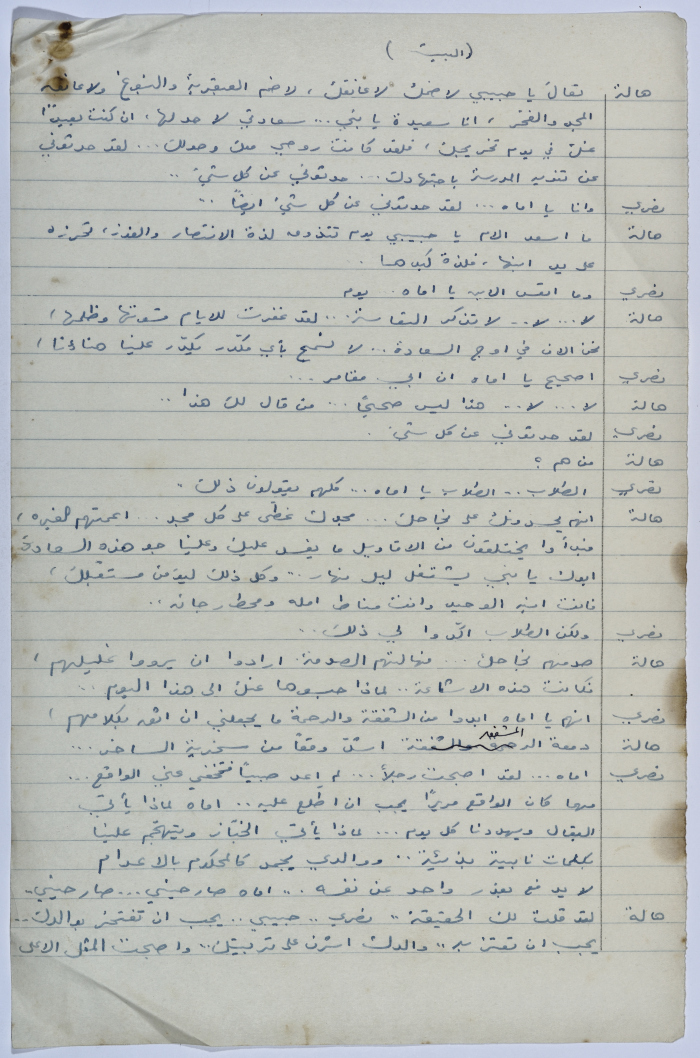 (البيت)
هالة تعال يا حبيبي لاضمك لاعانقك، لاضم العبقرية والنبوغ ولاعانق
المجد والفخر، انا سعيدة يا بني... سعادتي لا حد لها، ان كنت بعيدًا
عنك في يوم تخريجك، فلقد كانت روحي معك وحدك... لقد حدثوني
عن تنديه المدرسة باجتهادك... حدثوني عن كل شيء..
نصري وانا يا اماه... لقد حدثوني عن كل شيء ايضاً..
هالة ما اسعد الام يا حبيبي يوم تتذوق لذة الانتصار والفوز، تحرزه
على يد ابنها، فلذة كبدها.
نصري وما اتعس الابن يا اماه. يوم
هالة لا... لا.. لا تذكر التعاسة... لقد غفرت للايام قسوتها وظلمها،
نحن الان في اوج السعادة... لا تسمح بأي مكدّر يكدّر علينا هناءنا،
نصري اصحيح يا اماه ان ابي. مقامر...
هالة لا... لا.. هذا ليس صحيحًا... من قال لك هذا..
نصري لقد حدثوني عن كل شيء.
هالة من هم؟
نصري الطلاب.. الطلاب يا اماه... كلهم يقولون ذلك..
هالة انهم يحسدونك على نجاحك... مجدك غطّى على كل مجد... اعمتهم الغيره،
فبدأوا يختلقون من الاقاويل ما يفسد عليك وعلينا جو هذه السعادة
ابوك يا بني يشتغل ليل نهار... وكل ذلك ليؤمن مستقبلك،
فانت ابنه الوحيد وانت مناط امله ومحط رجائه..
نصري ولكن الطلاب اكّدوا لي ذلك...
هالة صدمهم نجاحك... فهالتهم الصدمة. ارادوا ان يرووا غليلهم،
فكانت هذه الاشاعة.. لماذا حبسوها عنك الى هذا اليوم..
نصري انهم يا اماه ابدوا من الشفقة والرحمة ما يجعلني ان اثق بكلامهم،
هالة دمعة المشفق اشدّ وقعًا من سخرية الساخر...
نصري اماه... لقد اصبحت رجلاً... لم اعد صبيًا فتخفي عني الواقع...
مهما كان الواقع مريرًا يجب ان اطّلع عليه.. اماه لماذا يأتي
البقال ويهددنا كل يوم... لماذا يأتي الخبّاز ويتهجّم علينا
بكلمات نابية بذيئة.. ووالدي يجمد كالمحكوم بالاعدام
لا يدفع بعذر واحد عن نفسه.. اماه صارحيني... صارحيني..
هالة لقد قلت لك الحقيقة.. نصري.. حبيبي.. يجب ان تفتخر بوالدك..
يجب ان تعتز به.. والدك اشرف على تربيتك.. واصبحت المثل الاعلى